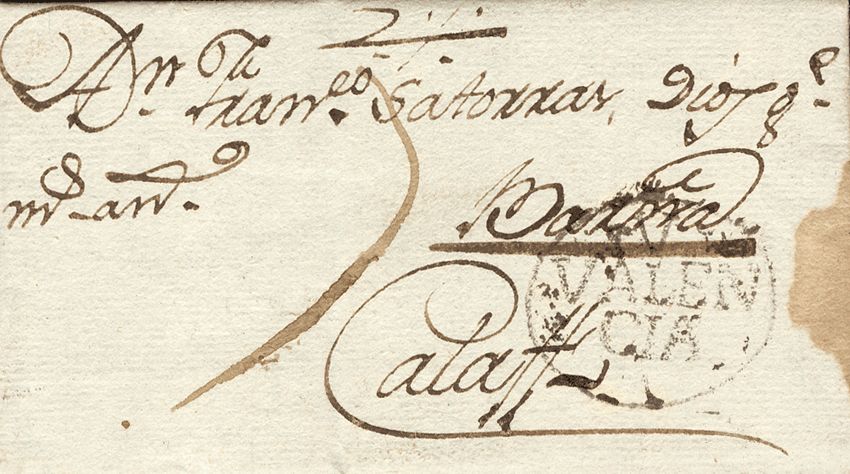 A Dn. Franco. Satorras, Dios ge.
ms. as.
Barzna.
V
VALEN
CIA
Calaff